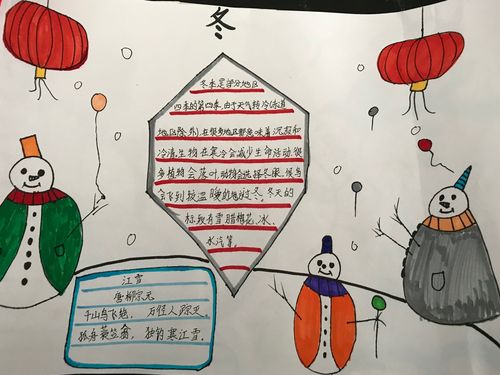 冬
冬季是部分地区
四季的第四季,由于天气转冷(赤道
地区除外),在很多地区都意味着沉寂和
冷清。生物在寒冷会减少生命活动,很
多植物会落叶,动物会选择冬眠,候鸟
会飞到较温暖的地方过冬。冬天的
标致有雪、腊梅花、冰、
水汽等。
江雪
唐柳宗元
千山鸟飞绝, 万径人踪灭
孤舟蓑笠翁, 独钓寒江雪。